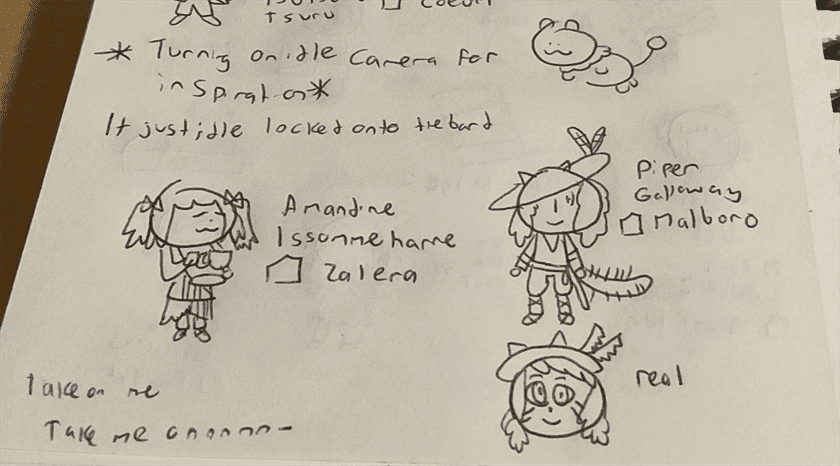 Tsuru
* Turning on idle camera for
inspiration *
It just idle locked onto the bard
Amandine
Issommeharre
Zalera
Piper
Galloway
Malboro
real
Take on me
Take me onnnnn-